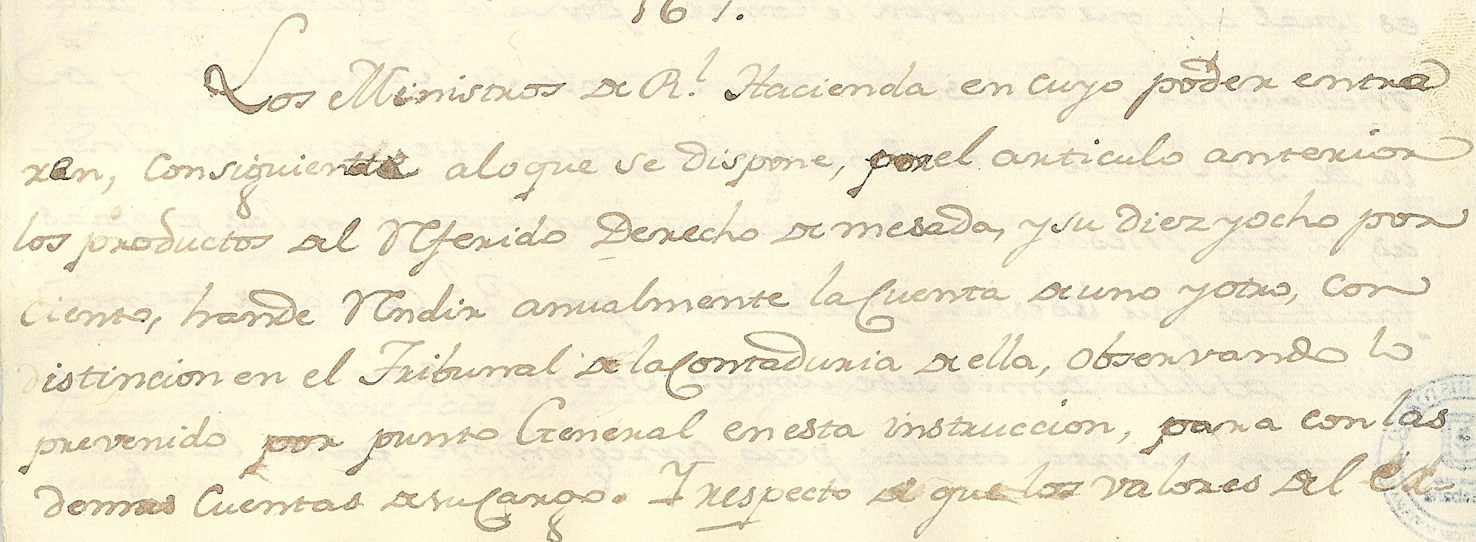 167.
Los Ministros de Rl. Hacienda en cuyo poder entra
ren, consiguiente a lo que se dispone, por el articulo anterior
los productos del Referido Derecho de mesada, y su Diez y ocho por
Ciento, han de Rendir anualmente la Cuenta de uno y otro, con
distincion en el Tribunal de la Contaduria de ella, observando lo
prevenido por punto General en esta instruccion, para con las
demas Cuentas de su Cargo. Y respecto de que los valores del